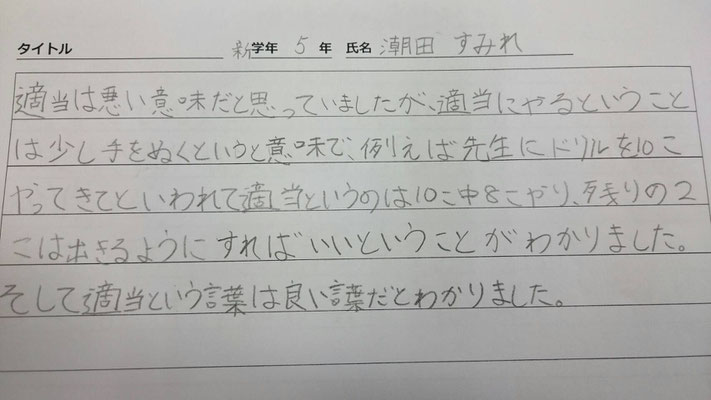 タイトル 新学年 5 年 氏名 潮田 すみれ
適当は悪い意味だと思っていましたが、適当にやるということ
は少し手をぬくというと意味で、例えば先生にドリルを10こ
やってきてといわれて適当というのは10こ中8こやり、残りの2
こは出きるようにすればいいということがわかりました。
そして適当という言葉は良い言葉だとわかりました。